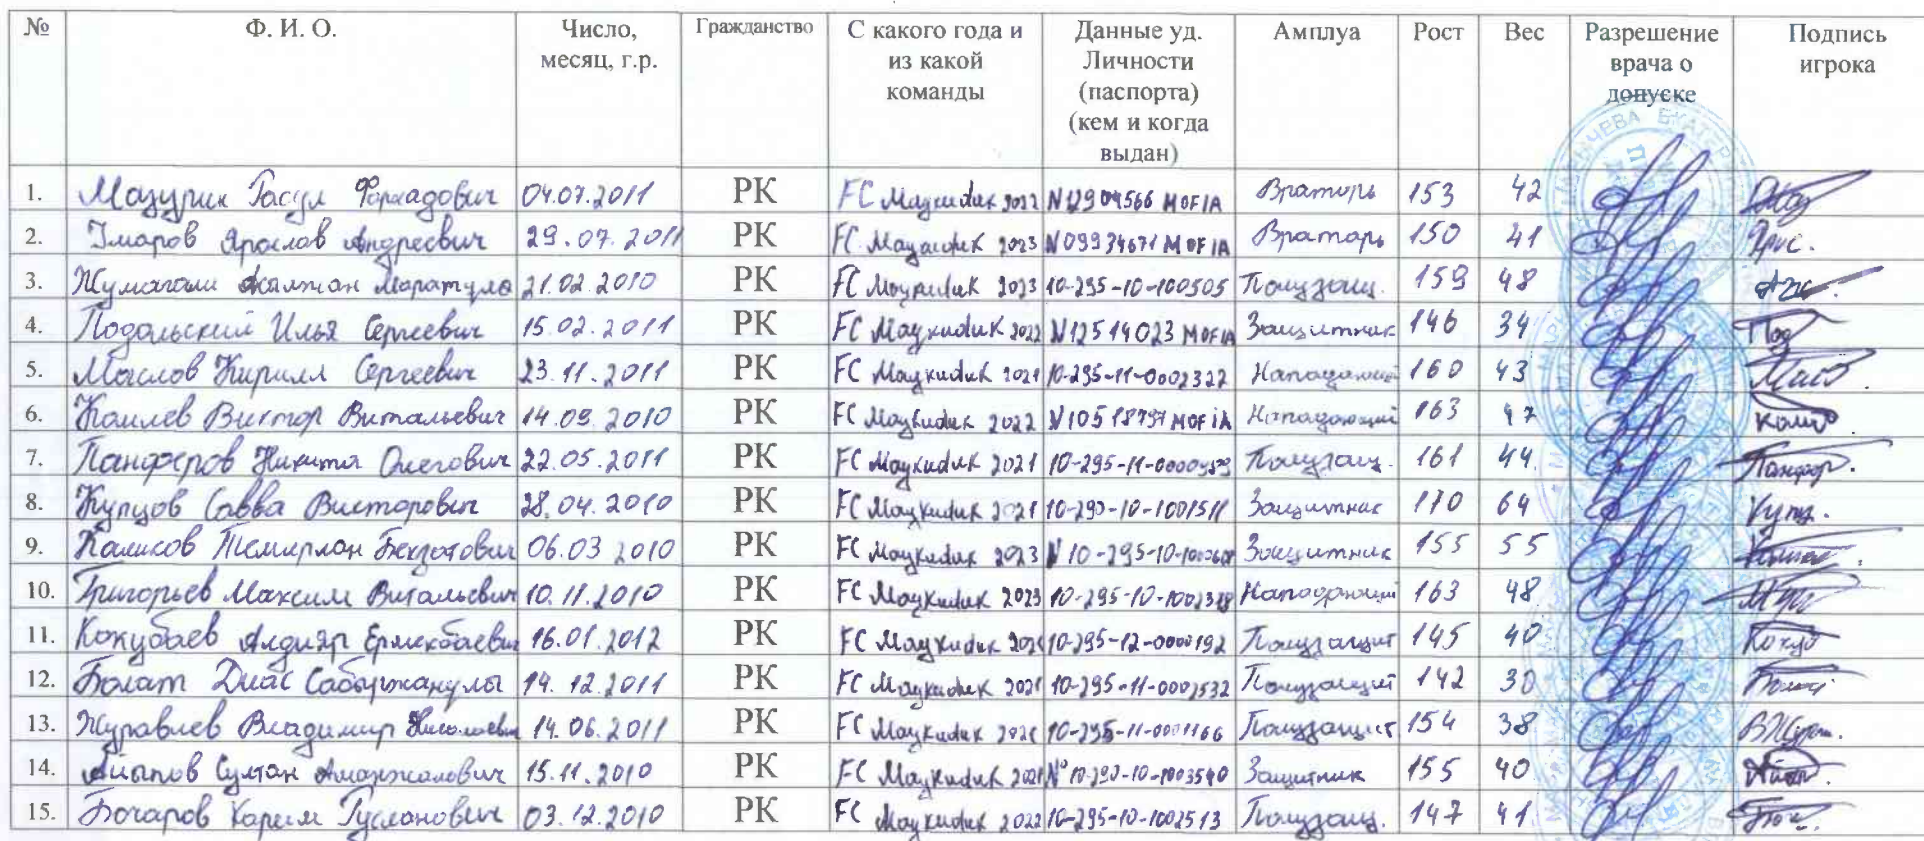 № Ф. И. О. Число, месяц, г.р. Гражданство С какого года и из какой команды Данные уд. Личности (паспорта) (кем и когда выдан) Амплуа Рост Вес Разрешение врача о допуске Подпись игрока
1. Расул Фархадович 04.07.2011 РК FC Маукидик 2022 N12904566 MOFIA Вратарь 153 42
2. Ярослав Андреевич 29.07.2011 РК FC Маукидик 2023 N09934671 MOFIA Вратарь 150 41 Ярис.
3. Маратұлы 21.02.2010 РК FC Маукидик 2023 10-295-10-100505 Полузащ. 159 48
4. Подольский Илья Сергеевич 15.02.2011 РК FC Маукидик 2022 N12514023 MOFIA Защитник 146 34 Под
5. Маслов Кирилл Сергеевич 23.11.2011 РК FC Маукидик 2021 10-295-11-0002322 Нападающий 160 43 Масл.
6. Виктор Витальевич 14.09.2010 РК FC Маукидик 2022 MOFIA Нападающий 163 47
7. Панферов Никита Олегович 22.05.2011 РК FC Маукидик 2021 Полузащ. 161 44 Панфер.
8. Купцов Савва Викторович 28.04.2010 РК FC Маукидик 2021 10-290-10-1001511 Защитник 170 64 Купц.
9. Каликов Темирлан 06.03 2010 РК FC Маукидик 2023 Защитник 155 55
10. Григорьев Максим Витальевич 10.11.2010 РК FC Маукидик 2023 Нападающий 163 48
11. Кокубаев Алдияр Ермекбаевич 16.01.2012 РК FC Маукидик 10-295-12-0000192 Полузащит 145 40
12. Болат Диас Сабыржанұлы 14.12.2011 РК FC Маукидик 2021 10-295-11-0002532 Полузащит 142 30
13. Журавлев Владимир Николаевич 14.06.2011 РК FC Маукидик 10-295-11-0001166 Полузащит 154 38 ВЖурав.
14. Султан Аманжолович 15.11.2010 РК FC Маукидик 2021 N° 10-290-10-1003540 Защитник 155 40
15. Бочаров Карим Русланович 03.12.2010 РК FC Маукидик 2022 10-295-10-1002513 Полузащ. 147 41 Боч.